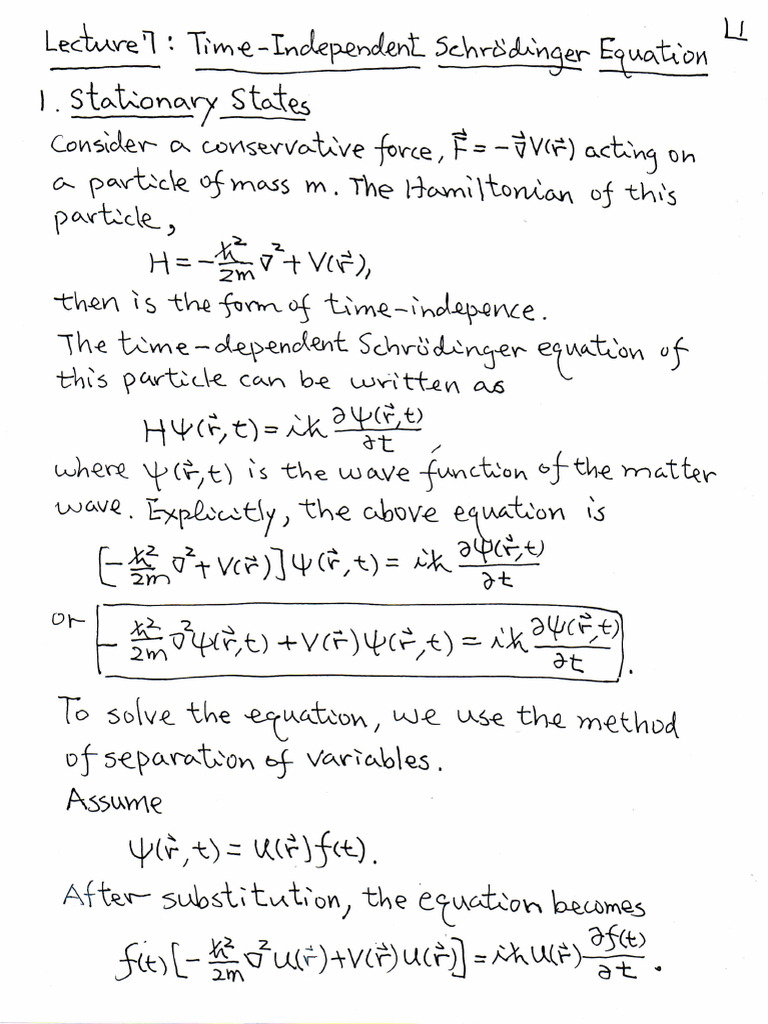 L1
Lecture 7: Time-Independent Schrödinger Equation
1. Stationary States
Consider a conservative force, F⃗ = -∇⃗V(r⃗) acting on
a particle of mass m. The Hamiltonian of this
particle,
H = -ℏ²/2m ∇² + V(r⃗),
then is the form of time-indepence.
The time-dependent Schrödinger equation of
this particle can be written as
Hψ(r⃗,t) = iℏ ∂ψ(r⃗,t)/∂t
where ψ(r⃗,t) is the wave function of the matter
wave. Explicitly, the above equation is
[-ℏ²/2m ∇² + V(r⃗)]ψ(r⃗,t) = iℏ ∂ψ(r⃗,t)/∂t
or -ℏ²/2m ∇²ψ(r⃗,t) + V(r⃗)ψ(r⃗,t) = iℏ ∂ψ(r⃗,t)/∂t.
To solve the equation, we use the method
of separation of variables.
Assume
ψ(r⃗,t) = u(r⃗)f(t).
After substitution, the equation becomes
f(t)[-ℏ²/2m ∇²u(r⃗)+V(r⃗)u(r⃗)] = iℏu(r⃗) ∂f(t)/∂t.